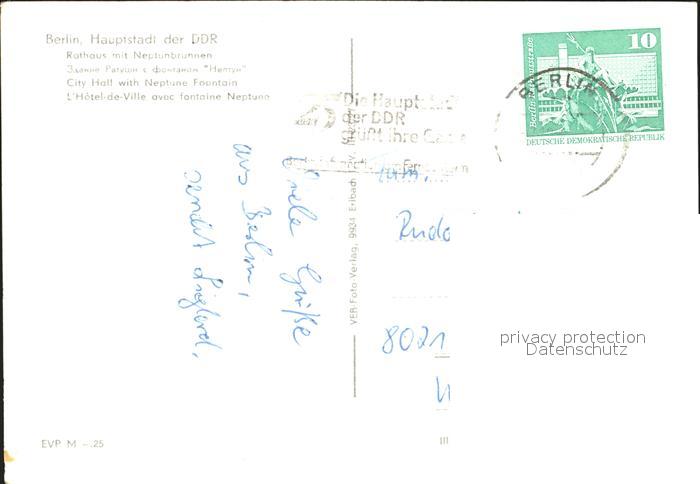 Berlin, Hauptstadt der DDR
Rathaus mit Neptunbrunnen
Здание Ратуши с фонтаном "Нептун"
City Hall with Neptune Fountain
L'Hôtel-de-Ville avec fontaine Neptune
Die Hauptstadt
der DDR
grüßt ihre Gäste
BERLIN
10
Berlin, Rathausstraße
DEUTSCHE DEMOKRATISCHE REPUBLIK
Viele Grüße
aus Berlin,
sendet
Fam.
Rudo
8021
privacy protection
Datenschutz
VEB Foto-Verlag, 9934 Erlbach
EVP M -.25
III